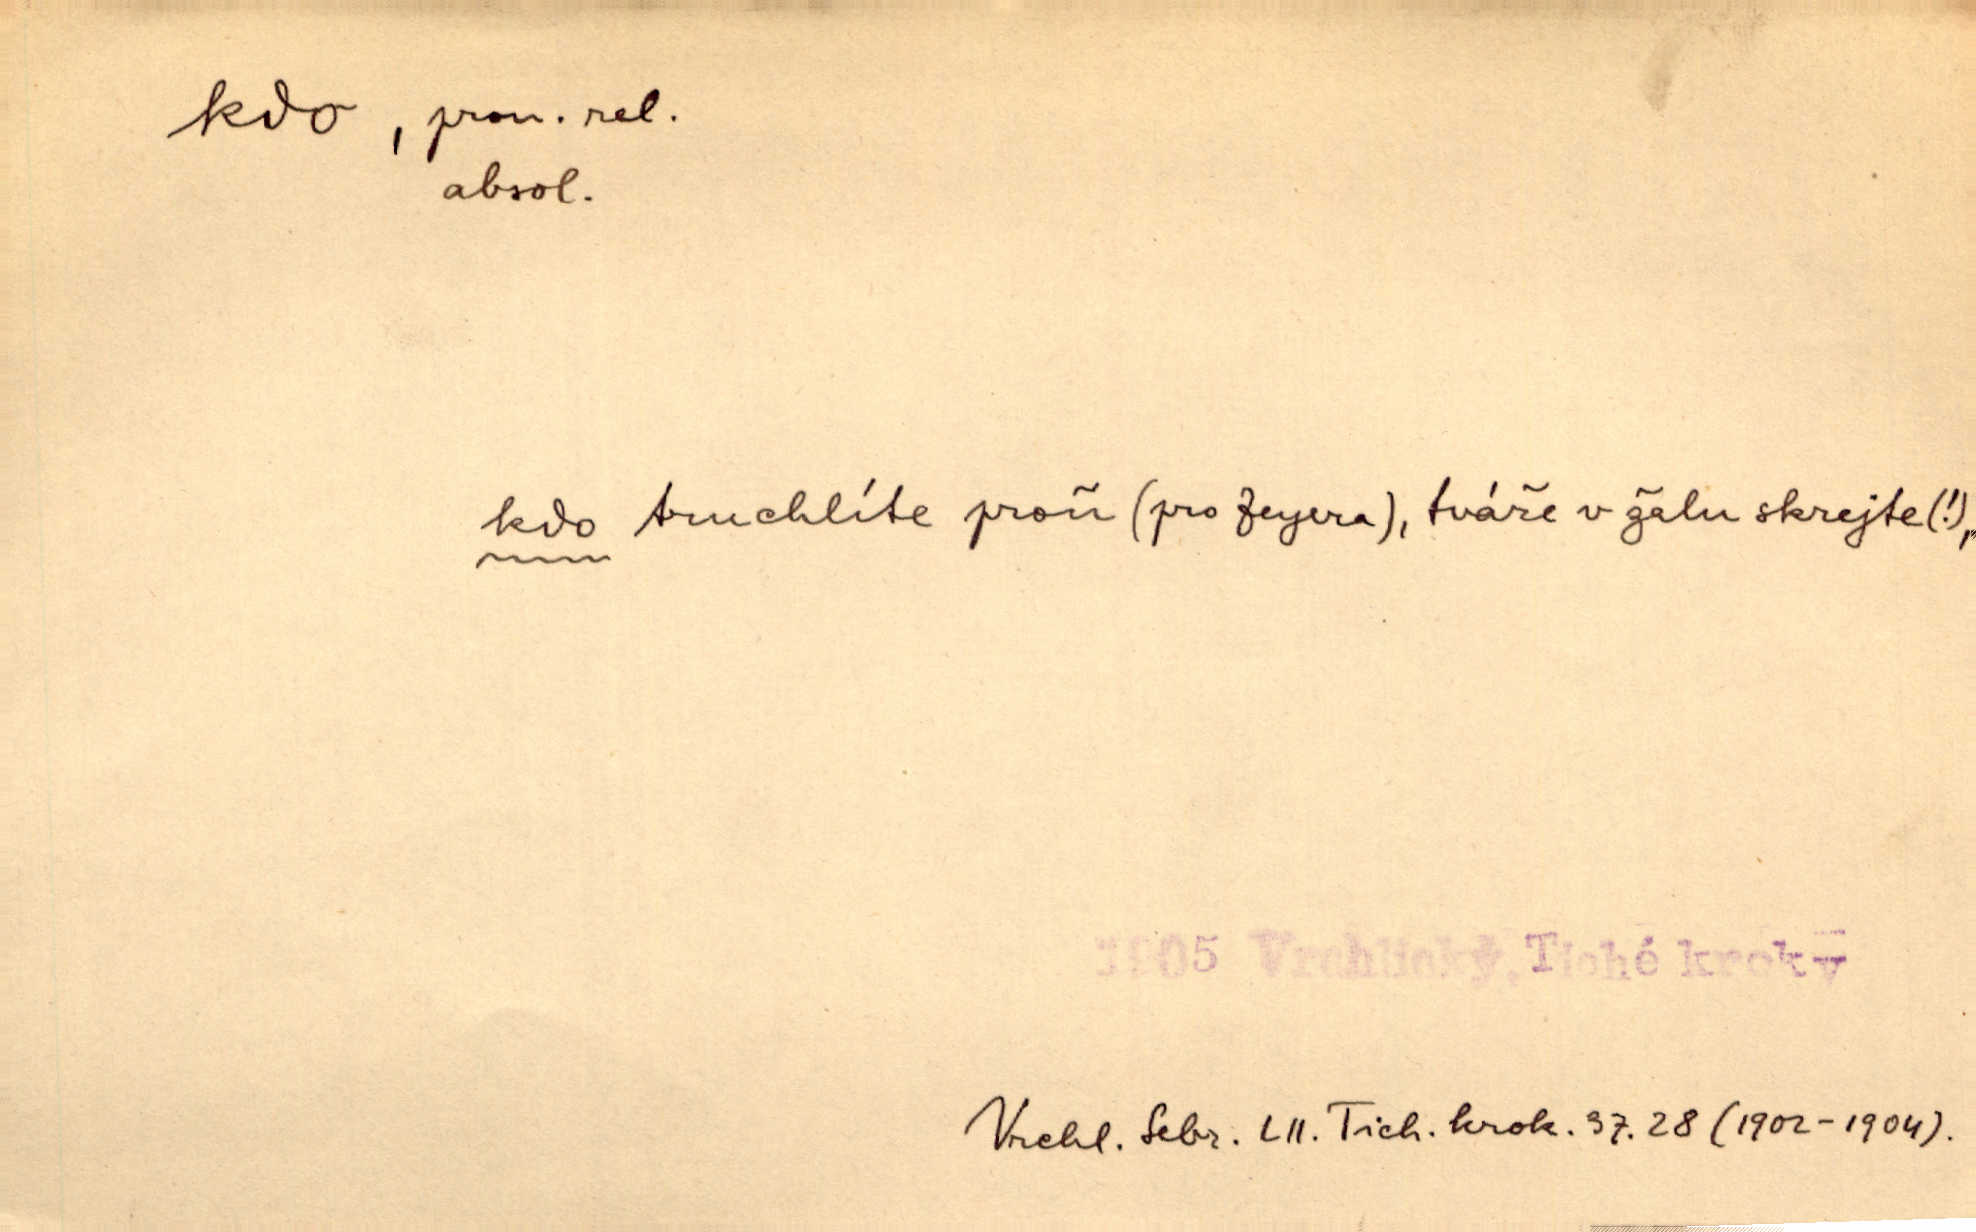 kdo, pron. rel.
absol.
kdo truchlíte proň (pro Zeyera), tváře v žalu skrejte(!),
1905 Vrchlický, Tiché kroky
Vrchl. Sebr. LII. Tich. krok. 37. 28 (1902-1904).